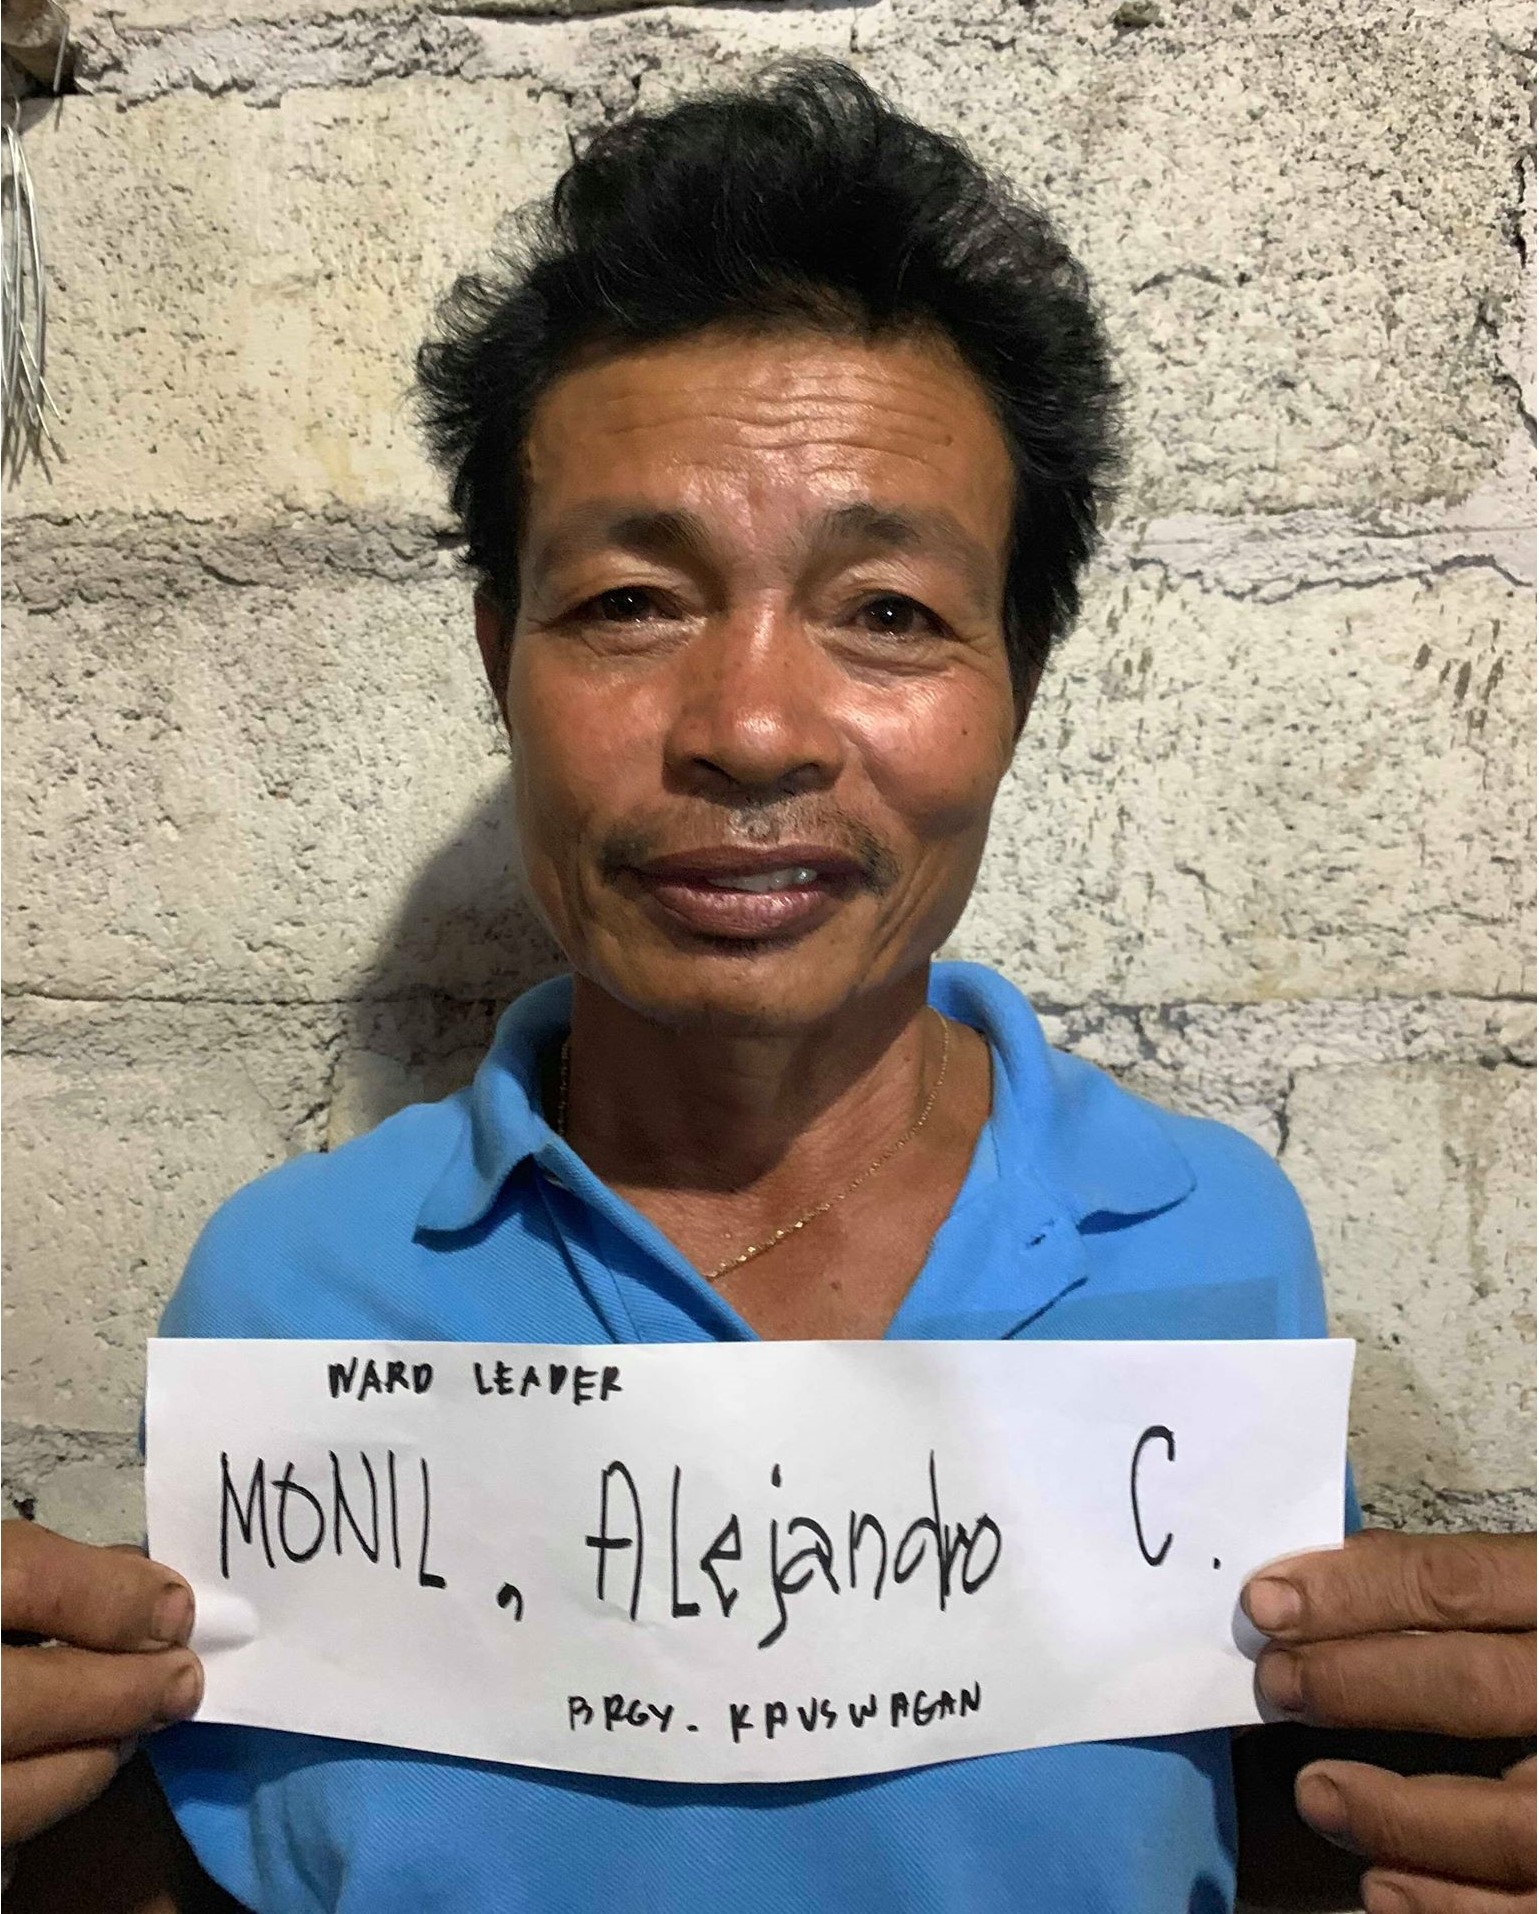 WARD LEADER
MONIL, Alejandro C.
BRGY. KAUSWAGAN